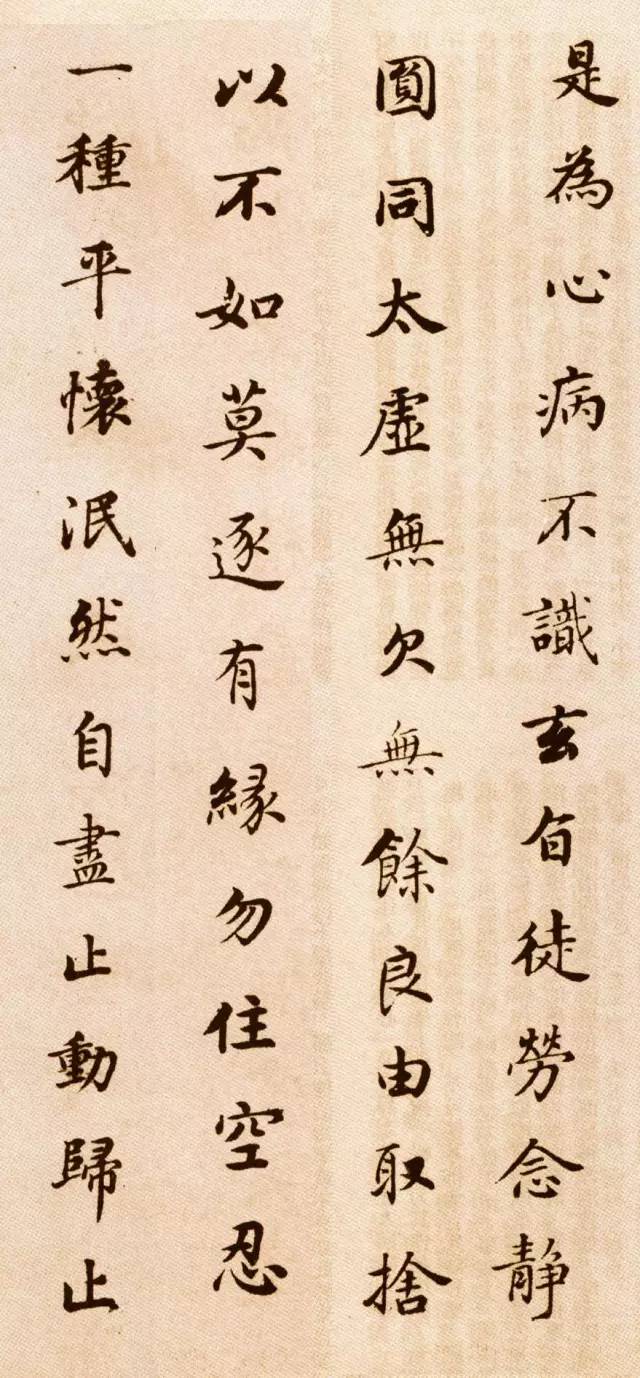 是為心病不識玄旨徒勞念静
圓同太虛無欠無餘良由取捨
以不如莫逐有縁勿住空忍
一種平懷泯然自盡止動歸止